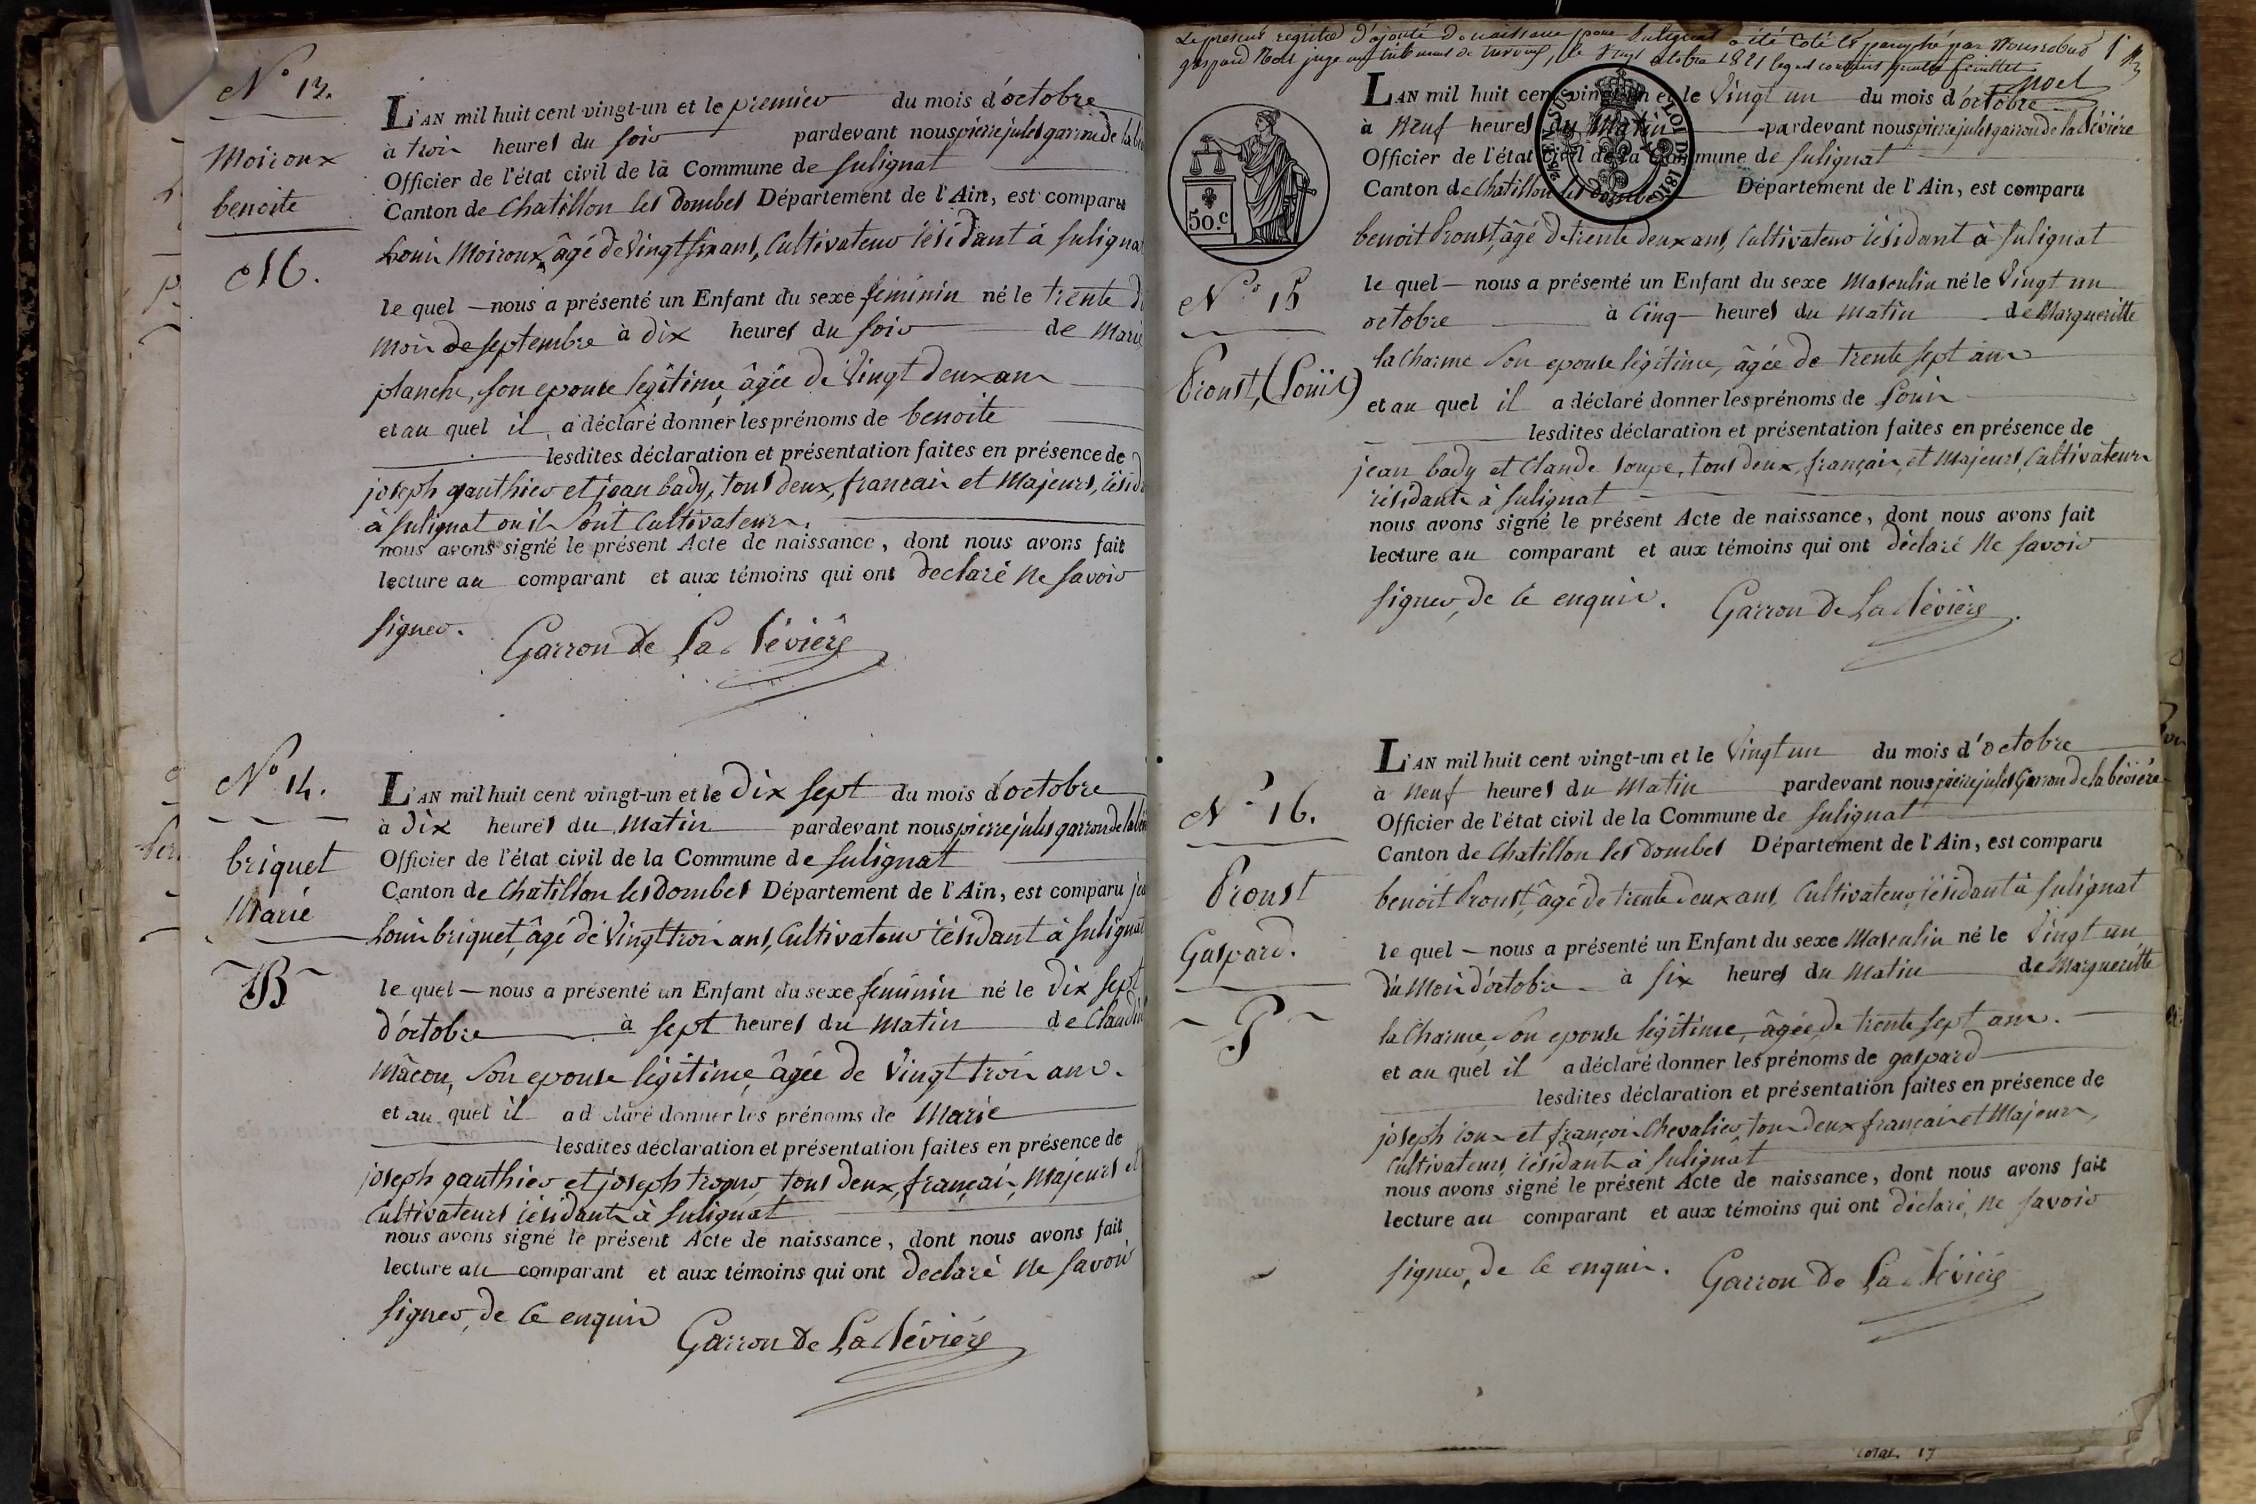 N° 13.
Moiroux
benoite
M.
L'AN mil huit cent vingt-un et le premier du mois d'octobre
à trois heures du soir pardevant nous pierre jules garron de la
Officier de l'état civil de la Commune de sulignat
Canton de Chatillon les dombes Département de l'Ain, est comparu
Louis Moiroux, âgé de vingt six ans, Cultivateur résidant à sulignat
le quel — nous a présenté un Enfant du sexe féminin né le trente du
mois de septembre à dix heures du soir de Marie
planche, son epouse légitime, âgée de vingt deux ans
et au quel il a déclaré donner les prénoms de benoite
lesdites déclaration et présentation faites en présence de
joseph gauthier et jean bady, tous deux, francais et Majeurs,
à sulignat ou ils sont Cultivateurs.
nous avons signé le présent Acte de naissance, dont nous avons fait
lecture au comparant et aux témoins qui ont declaré ne savoir
signer.
Garron De La Bévière
N° 14.
briquet
Marie
B
L'AN mil huit cent vingt-un et le dix sept du mois d'octobre
à dix heures du Matin pardevant nous pierre jules garron de la
Officier de l'état civil de la Commune de sulignat
Canton de Chatillon les dombes Département de l'Ain, est comparu
Louis briquet, âgé de vingt trois ans, Cultivateur résidant à sulignat
le quel — nous a présenté un Enfant du sexe féminin né le dix sept
d'octobre à sept heures du Matin de
Mâcon, son epouse légitime, âgée de vingt trois ans.
et au quel il a déclaré donner les prénoms de Marie
lesdites déclaration et présentation faites en présence de
joseph gauthier et joseph tous deux, français, Majeurs et
Cultivateurs résidants à sulignat
nous avons signé le présent Acte de naissance, dont nous avons fait
lecture au comparant et aux témoins qui ont declaré ne savoir
signer, de ce enquis
Garron De La Bévière
Le présent registre d'ajouté de naissance pour sulignat a été coté et paraphé par Nous
gaspard Noel juge au tribunal de trevoux, le vingt octobre 1821 lequel contient feuillet
Noel
50.C
SEN SUS
LOI DE 1816
N° 15
Proust, (Louis)
L'AN mil huit cent vingt-un et le vingt un du mois d'octobre
à Neuf heures du Matin pardevant nous pierre jules garron de la bévière
Officier de l'état civil de la Commune de sulignat
Canton de Chatillon les dombes Département de l'Ain, est comparu
benoit Proust, âgé de trente deux ans, Cultivateur résidant à sulignat
le quel — nous a présenté un Enfant du sexe Masculin né le vingt un
octobre à Cinq heures du Matin de Margueritte
la Charme son epouse légitime, âgée de trente sept ans
et au quel il a déclaré donner les prénoms de Louis
lesdites déclaration et présentation faites en présence de
jean bady et Claude soupe, tous deux, français, et Majeurs, Cultivateurs
résidants à sulignat
nous avons signé le présent Acte de naissance, dont nous avons fait
lecture au comparant et aux témoins qui ont déclaré ne savoir
signer, de ce enquis. Garron De La Bévière
N° 16.
Proust
Gaspard.
P
L'AN mil huit cent vingt-un et le vingt un du mois d'octobre
à neuf heures du Matin pardevant nous pierre jules Garron de la bévière
Officier de l'état civil de la Commune de sulignat
Canton de Chatillon les dombes Département de l'Ain, est comparu
benoit Proust, âgé de trente deux ans, Cultivateur, résidant à sulignat
le quel — nous a présenté un Enfant du sexe Masculin né le vingt un
du Mois d'octobre à six heures du Matin de Margueritte
la Charme, son epouse légitime, âgée de trente sept ans.
et au quel il a déclaré donner les prénoms de gaspard
lesdites déclaration et présentation faites en présence de
joseph et françois Chevalier, tous deux français et Majeurs,
Cultivateurs, résidants à sulignat
nous avons signé le présent Acte de naissance, dont nous avons fait
lecture au comparant et aux témoins qui ont déclaré, ne savoir
signer, de ce enquis. Garron De La Bévière
17